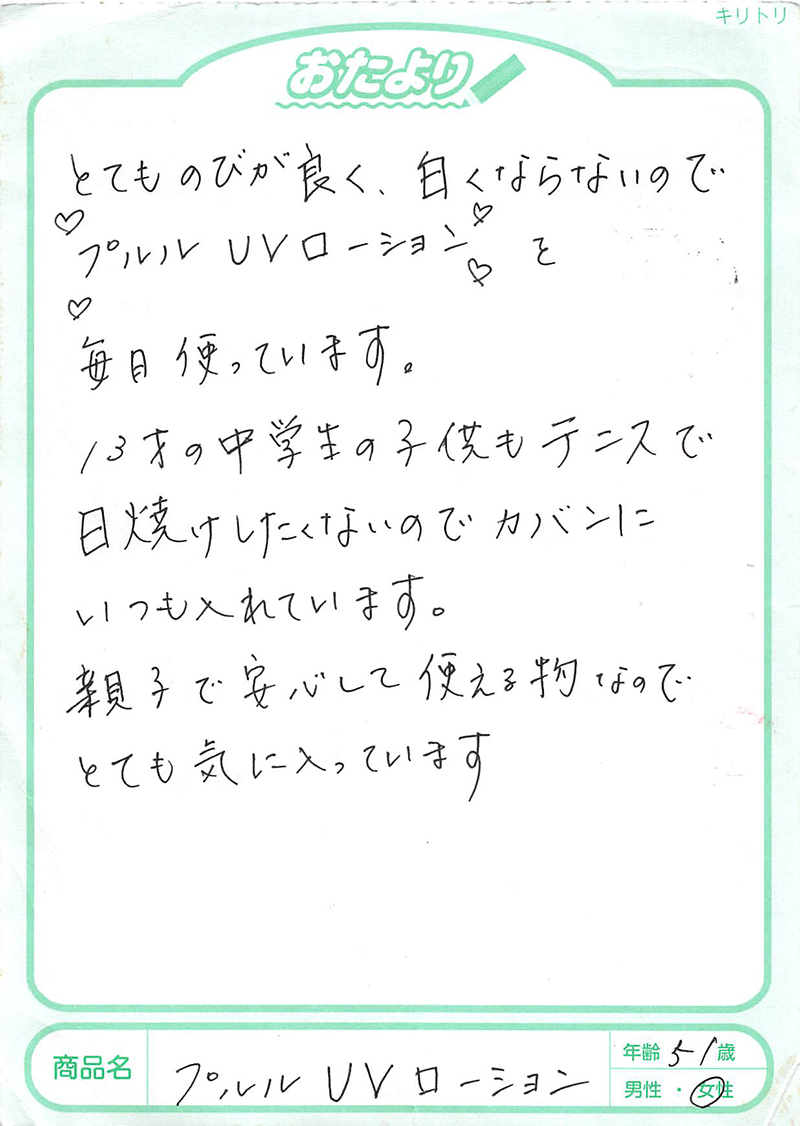 キリトリ
おたより
とてものびが良く、白くならないので
♡プルル UVローション♡を
毎日使っています。
13才の中学生の子供もテニスで
日焼けしたくないのでカバンに
いつも入れています。
親子で安心して使える物なので
とても気に入っています
商品名 プルル UVローション
年齢 51歳
男性・女性